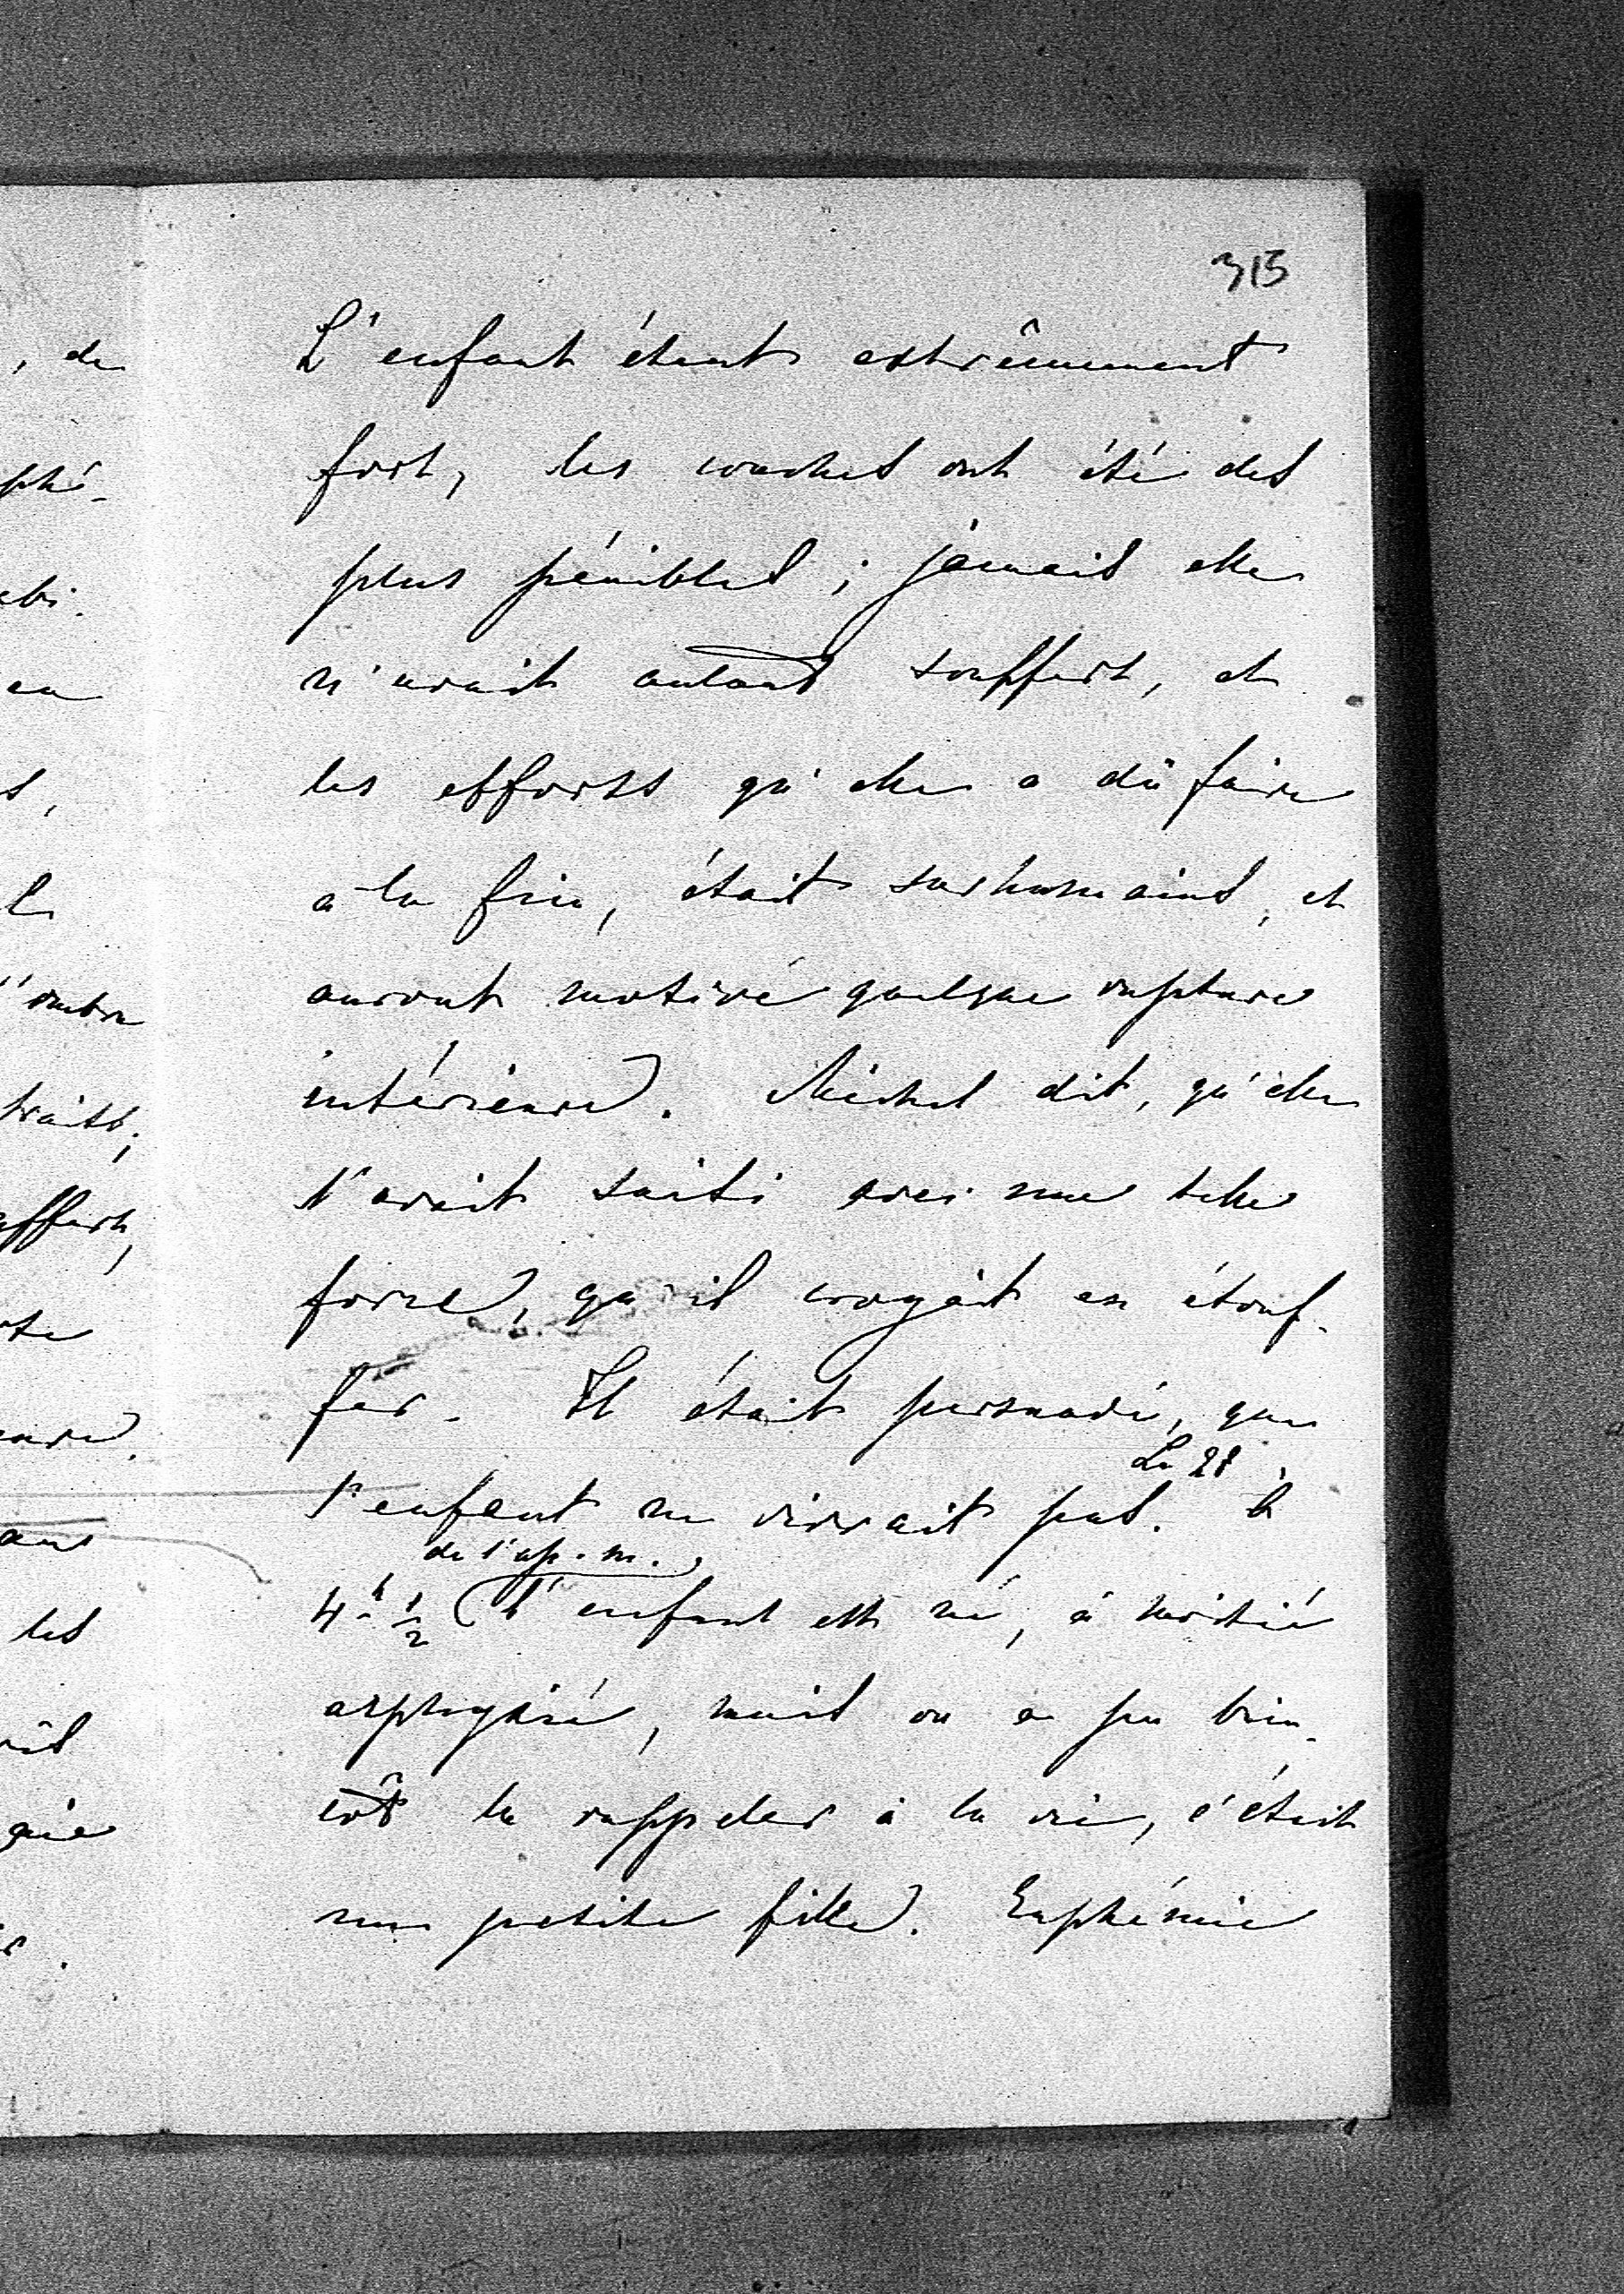 315
L'enfant étant extrêmement
fort, les couches ont été des
plus pénibles ; jamais elle
n'avait autant souffert, et
les efforts qu'elle a dû faire
à la fin, était surhumains, et
auront motivé quelque rupture
intérieure. Michel dit, qu'elle
l'avait saisi avec une telle
force, qu'il croyait en étouf-
fer. Il était persuadé, que
l'enfant ne vivrait pas. Le 28 à
4 h. 1/2 de l'ap. m. l'enfant est né, à moitié
asphyxié, mais on a pu bien-
tôt la rappeler à la vie, c'était
une petite fille. Euphémie
, de
phé-
abi-
en
s,
l'ombre
traits ;
uffert,
les
gie